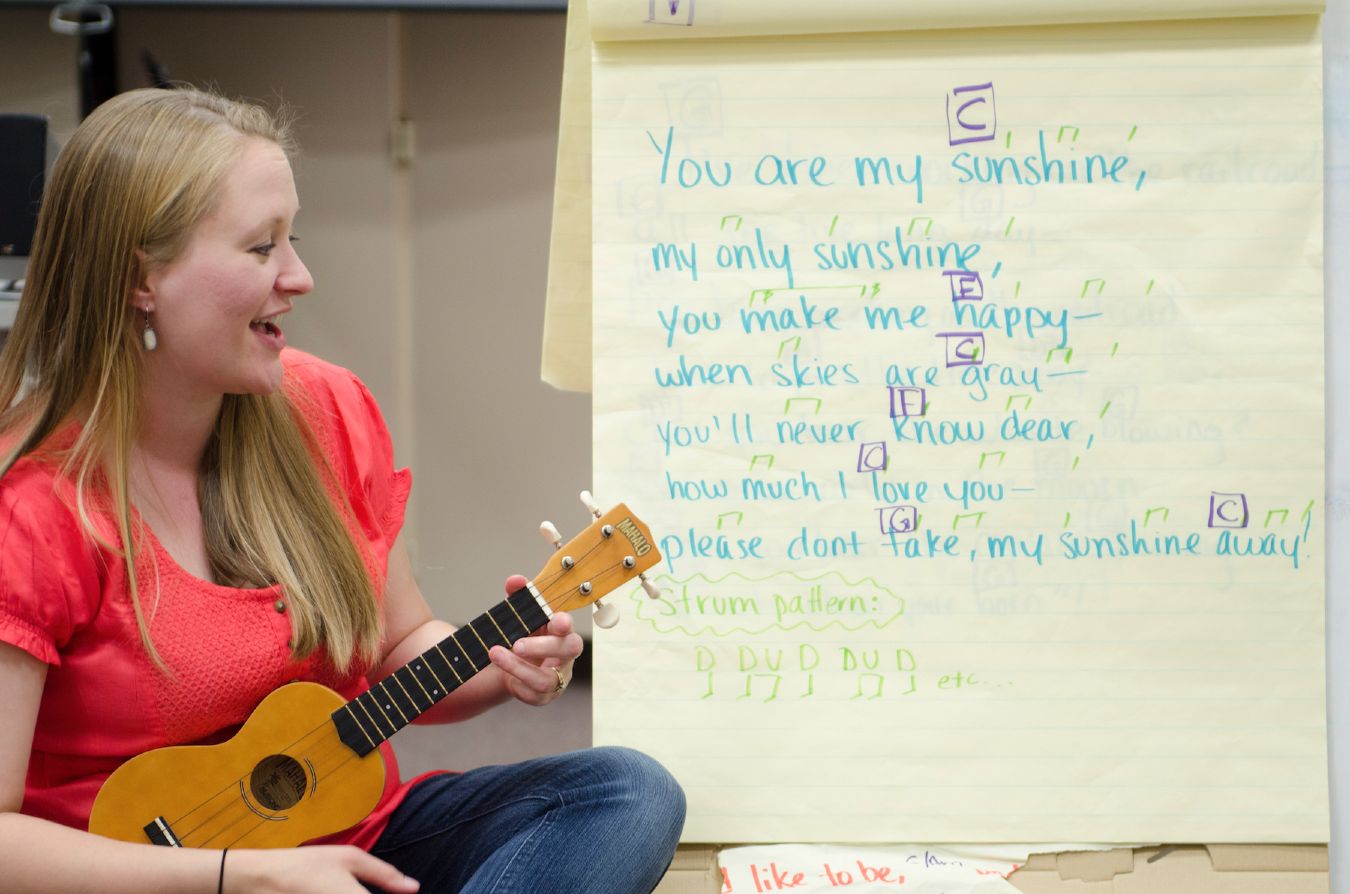 C
You are my sunshine,
my only sunshine,
F
you make me happy—
C
when skies are gray—
F
you'll never know dear,
C
how much I love you—
G C
please dont take, my sunshine away!
Strum pattern:
D DU D DU D
etc...
MAHALO
MAHALO
I like to be,